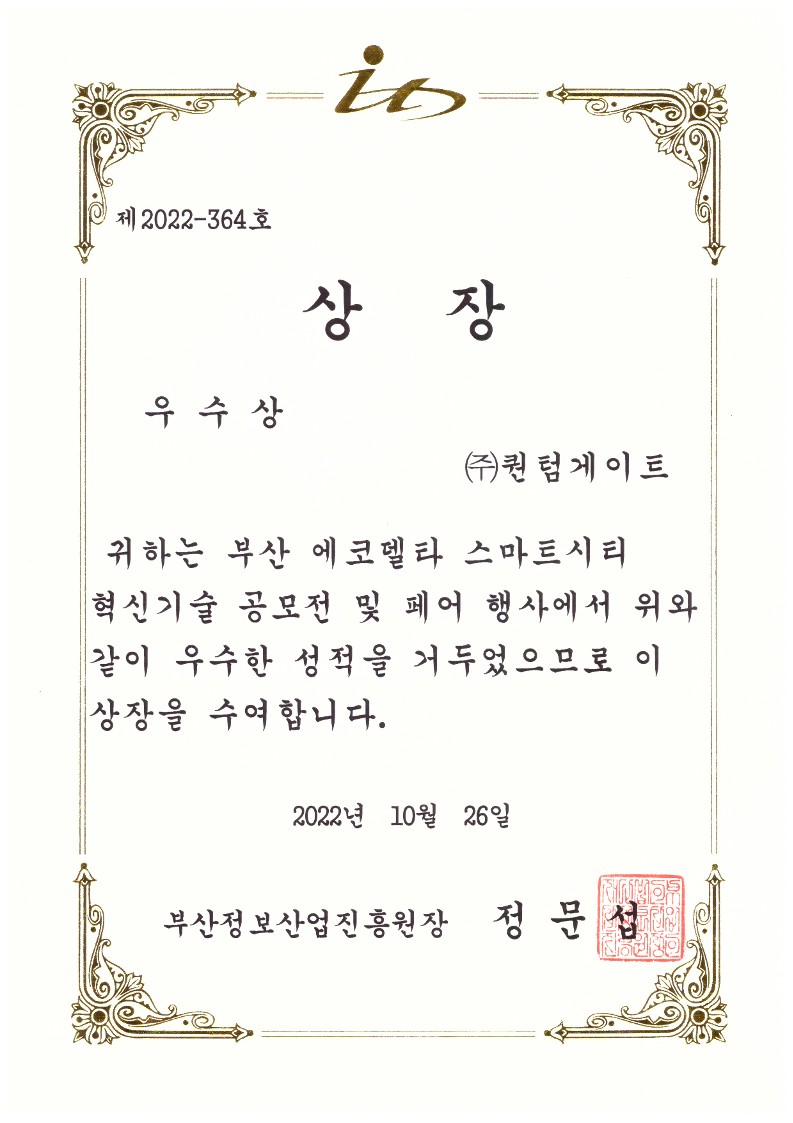 제2022-364호
상 장
우 수 상
㈜퀀텀게이트
귀하는 부산 에코델타 스마트시티
혁신기술 공모전 및 페어 행사에서 위와
같이 우수한 성적을 거두었으므로 이
상장을 수여합니다.
2022년 10월 26일
부산정보산업진흥원장 정 문 섭